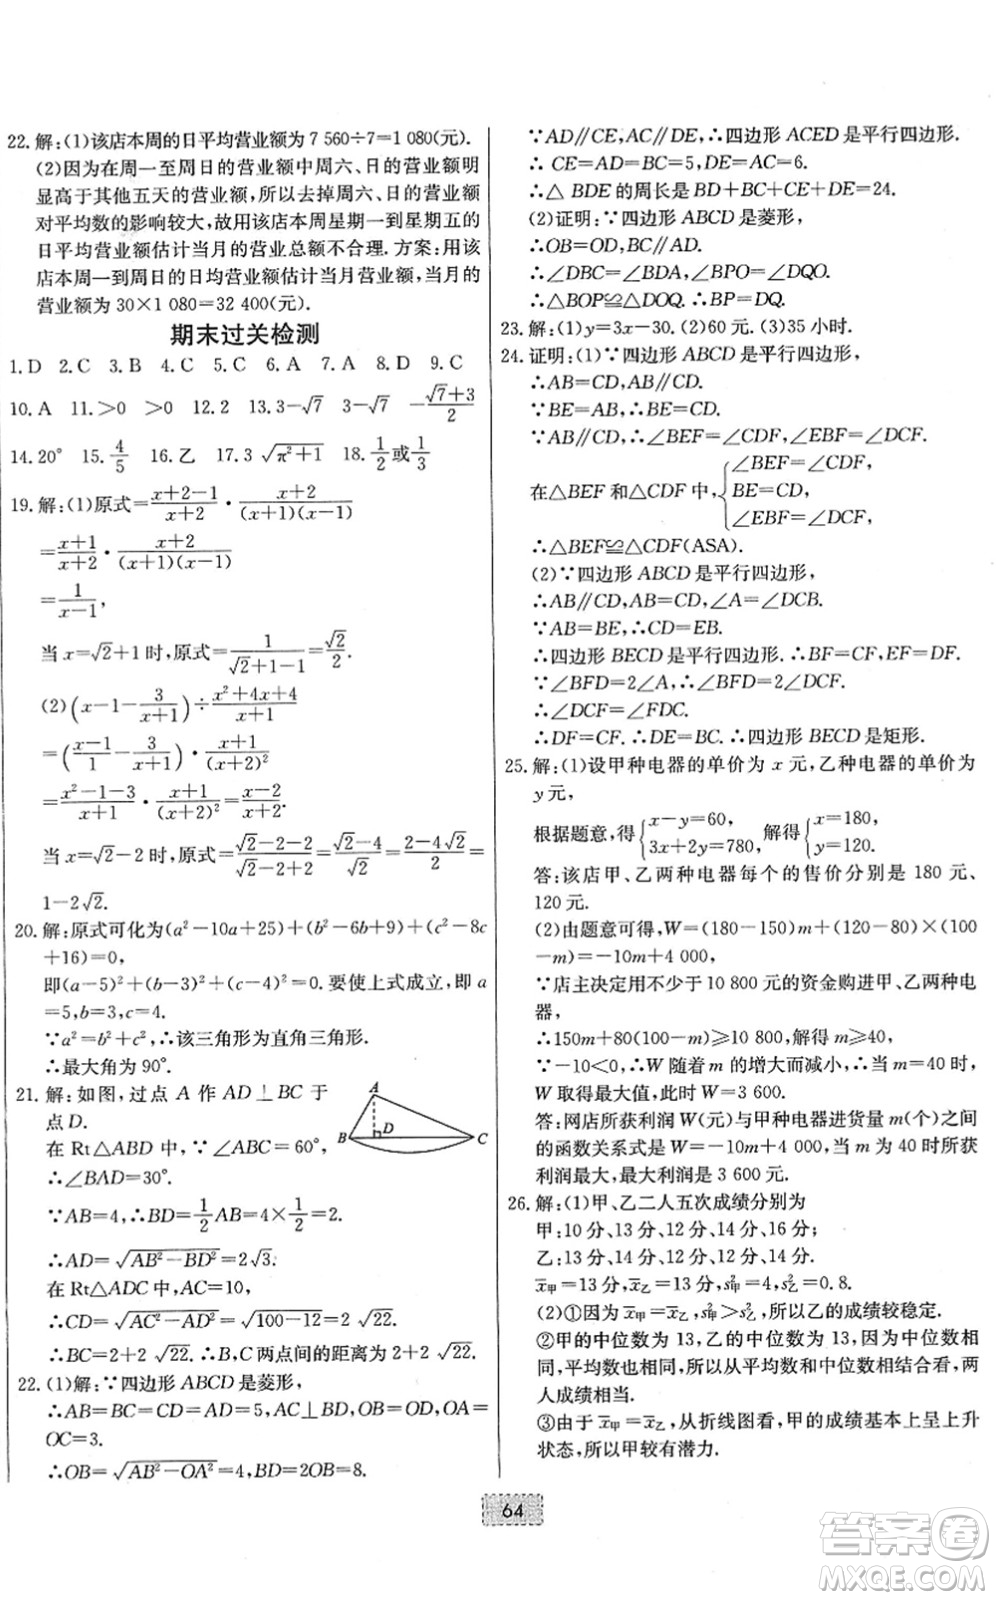 22. 解:(1)该店本周的日平均营业额为 7 560÷7=1 080(元).
(2)因为在周一至周日的营业额中周六、日的营业额明
显高于其他五天的营业额,所以去掉周六、日的营业额
对平均数的影响较大,故用该店本周星期一到星期五的
日平均营业额估计当月的营业总额不合理. 方案:用该
店本周一到周日的日均营业额估计当月营业额,当月的
营业额为 30×1 080=32 400(元).
期末过关检测
1. D 2. C 3. B 4. C 5. C 6. A 7. D 8. D 9. C
10. A 11. >0 >0 12. 2 13. 3-√7 3-√7 -(√7+3)/2
14. 20° 15. 4/5 16. 乙 17. 3√(π²+1) 18. 1/2或1/3
19. 解:(1)原式=(x+2-1)/(x+2)·(x+2)/((x+1)(x-1))
=(x+1)/(x+2)·(x+2)/((x+1)(x-1))
=1/(x-1),
当 x=√2+1 时,原式=1/(√2+1-1)=√2/2.
(2)(x-1-3/(x+1))÷(x²+4x+4)/(x+1)
=((x-1)/1-3/(x+1))·(x+1)/(x+2)²
=(x²-1-3)/(x+1)·(x+1)/(x+2)²=(x-2)/(x+2).
当 x=√2-2 时,原式=(√2-2-2)/(√2-2+2)=(√2-4)/√2=(2-4√2)/2=
1-2√2.
20. 解:原式可化为(a²-10a+25)+(b²-6b+9)+(c²-8c
+16)=0,
即(a-5)²+(b-3)²+(c-4)²=0. 要使上式成立,即 a
=5,b=3,c=4.
∵a²=b²+c²,∴该三角形为直角三角形.
∴最大角为 90°.
21. 解:如图,过点 A 作 AD⊥BC 于
点 D.
在 Rt△ABD 中,∵∠ABC=60°,
∴∠BAD=30°.
A
B
D
C
∵AB=4,∴BD=1/2AB=4×1/2=2.
∴AD=√(AB²-BD²)=2√3.
在 Rt△ADC 中,AC=10,
∴CD=√(AC²-AD²)=√(100-12)=2√22.
∴BC=2+2√22. ∴B,C 两点间的距离为 2+2√22.
22. (1)解:∵四边形 ABCD 是菱形,
∴AB=BC=CD=AD=5,AC⊥BD,OB=OD,OA=
OC=3.
∴OB=√(AB²-OA²)=4,BD=2OB=8.
∵AD∥CE,AC∥DE,∴四边形 ACED 是平行四边形.
∴CE=AD=BC=5,DE=AC=6.
∴△BDE 的周长是 BD+BC+CE+DE=24.
(2)证明:∵四边形 ABCD 是菱形,
∴OB=OD,BC∥AD.
∴∠DBC=∠ADB,∠BPO=∠DQO.
∴△BOP≌△DOQ. ∴BP=DQ.
23. 解:(1)y=3x-30. (2)60 元. (3)35 小时.
24. 证明:(1)∵四边形 ABCD 是平行四边形,
∴AB=CD,AB∥CD.
∵BE=AB,∴BE=CD.
∵AB∥CD,∴∠BEF=∠CDF,∠EBF=∠DCF.
在△BEF 和△CDF 中,{∠BEF=∠CDF,
BE=CD,
∠EBF=∠DCF,
∴△BEF≌△CDF(ASA).
(2)∵四边形 ABCD 是平行四边形,
∴AB∥CD,AB=CD,∠A=∠DCB.
∵AB=BE,∴CD=EB.
∴四边形 BECD 是平行四边形. ∴BF=CF,EF=DF.
∵∠BFD=2∠A,∴∠BFD=2∠DCF.
∴∠DCF=∠FDC.
∴DF=CF. ∴DE=BC. ∴四边形 BECD 是矩形.
25. 解:(1)设甲种电器的单价为 x 元,乙种电器的单价为
y 元,
根据题意,得{x-y=60, 3x+2y=780, 解得{x=180, y=120.
答:该店甲、乙两种电器每个的售价分别是 180 元、
120 元.
(2)由题意可得,W=(180-150)m+(120-80)×(100
-m)=-10m+4 000,
∵店主决定用不少于 10 800 元的资金购进甲、乙两种电
器,
∴150m+80(100-m)≥10 800,解得 m≥40,
∵-10<0,∴W 随着 m 的增大而减小,当 m=40 时,
W 取得最大值,此时 W=3 600.
答:网店所获利润 W(元)与甲种电器进货量 m(个)之间
的函数关系式是 W=-10m+4 000,当 m 为 40 时所获
利润最大,最大利润是 3 600 元.
26. 解:(1)甲、乙二人五次成绩分别为
甲:10 分,13 分,12 分,14 分,16 分;
乙:13 分,14 分,12 分,12 分,14 分.
x̄甲=13 分,x̄乙=13 分,s²甲=4,s²乙=0.8.
(2)①因为 x̄甲=x̄乙,s²甲>s²乙,所以乙的成绩较稳定.
②甲的中位数为 13,乙的中位数为 13,因为中位数相
同,平均数也相同,所以从平均数和中位数相结合看,两
人成绩相当.
③由于 x̄甲=x̄乙,从折线图看,甲的成绩基本上呈上升
状态,所以甲较有潜力.
64
答案圈
MXQE.COM